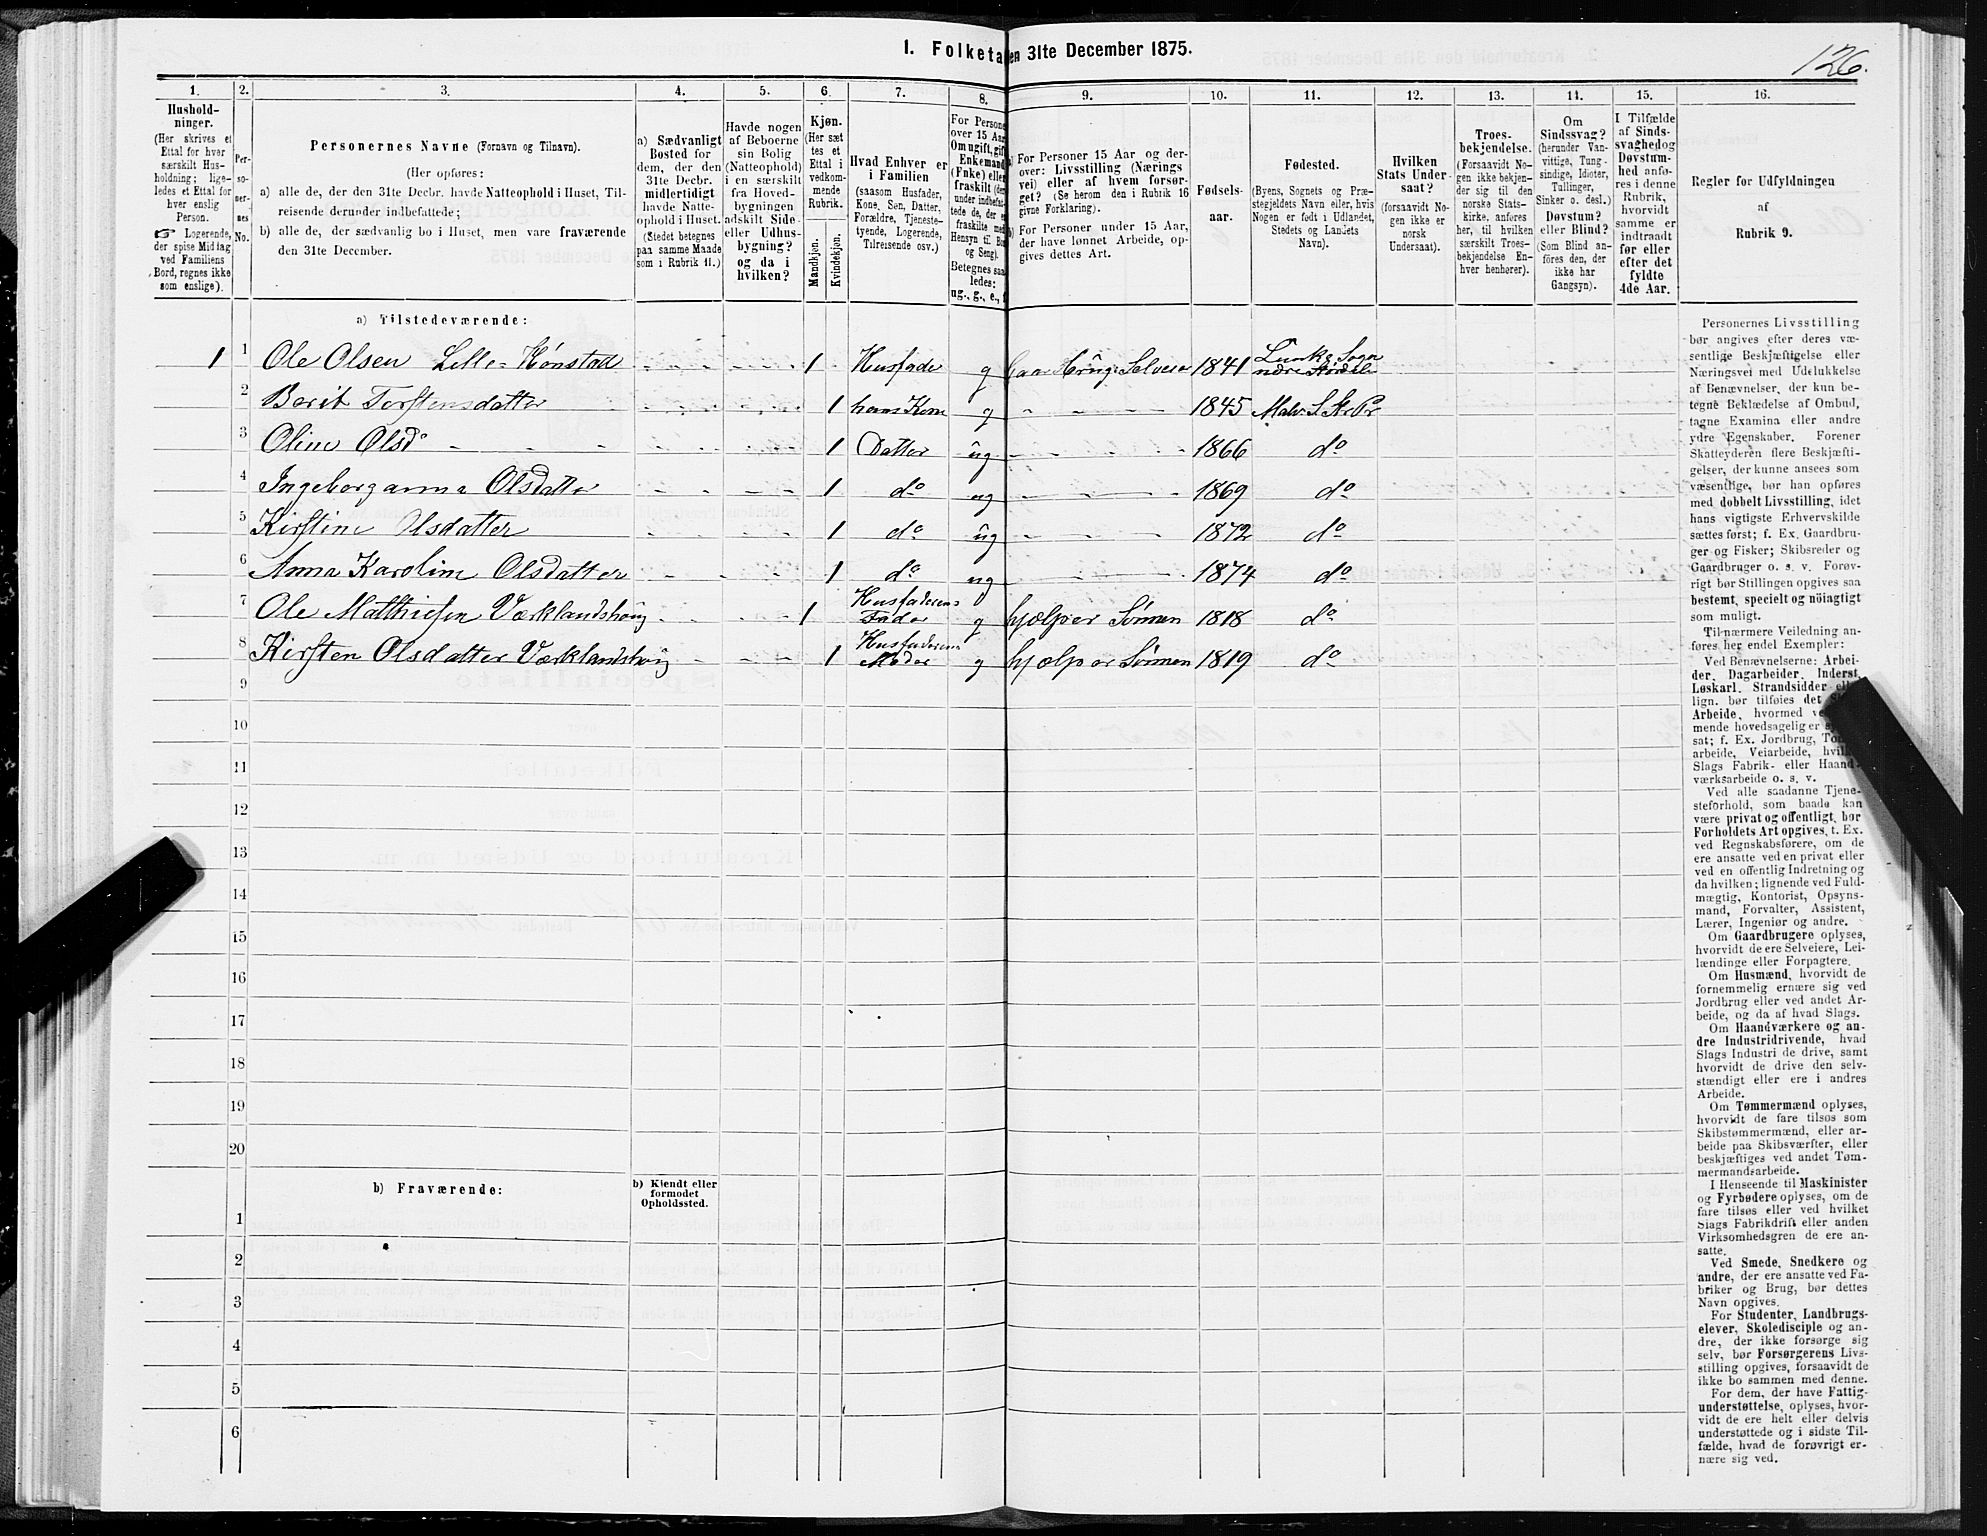 126.
1. Folketa en 31te December 1875.
1. 2. 3. 4. 5. 6. 7. 8. 9. 10. 11. 12. 13. 14. 15. 16.
Hushold-
ninger.
(Her skrives et
Ettal for hver
særskilt Hus-
holdning; lige-
ledes et Ettal for
hver enslig
Person.
☞ Logerende,
der spise Middag
ved Familiens
Bord, regnes ikke
som enslige).
Per-
so-
ner-
nes
No.
Personernes Navne (Fornavn og Tilnavn).
(Her opføres:
a) alle de, der den 31te Decbr. havde Natteophold i Huset, Til-
reisende derunder indbefattede;
b) alle de, der sædvanlig bo i Huset, men vare fraværende
den 31te December.
a) Sædvanligt
Bosted for
dem, der den
31te Decbr.
midlertidigt
havde Natte-
ophold i Huset.
(Stedet betegnes
paa samme Maade
som i Rubrik 11.)
Havde nogen
af Beboerne
sin Bolig
(Natteophold)
i en særskilt
fra Hoved-
bygningen
adskilt Side-
eller Udhus-
bygning?
og da i
hvilken?
Kjøn.
(Her sæt-
tes et
Ettal i
vedkom-
mende
Rubrik.
Mandkjøn.
Kvindekjøn.
Hvad Enhver er
i Familien
(saasom Husfader,
Kone, Søn, Datter,
Forældre, Tjeneste-
tyende, Logerende,
Tilreisende osv.)
For Persone
over 15 Aar
Om ugift, gift
Enkemand
(Enke) eller
fraskilt (der-
under indbefat-
tede de, der e
fraskilte med
Hensyn til Bo
og Seng).
Betegnes saa
ledes:
ug., g., e., f
a) For Personer 15 Aar og der-
over: Livsstilling (Nærings
vei) eller af hvem forsør-
get? (Se herom den i Rubrik 16
givne Forklaring).
b) For Personer under 15 Aar,
der have lønnet Arbeide, op-
gives dettes Art.
Fødsels-
aar.
Fødested.
(Byens, Sognets og Præ-
stegjeldets Navn eller, hvis
Nogen er født i Udlandet,
Stedets og Landets
Navn).
Hvilken
Stats Under-
saat?
(forsaavidt No-
gen ikke er
norsk
Undersaat).
Troes-
bekjendelse.
(Forsaavidt No-
gen ikke bekjen-
der sig til den
norske Stats-
kirke, anføres
her, til hvilken
særskilt Troes-
bekjendelse En-
hver henhører).
Om
Sindssvag?
(herunder Van-
vittige, Tung-
sindige, Idioter,
Tullinger,
Sinker o. desl.)
Døvstum?
eller Blind?
(Som Blind an-
føres den, der
ikke har
Gangsyn).
I Tilfælde
af Sinds-
svaghed og
Døvstum-
hed anfø-
res i denne
Rubrik,
hvorvidt
samme er
indtraadt
før eller
efter det
fyldte
4de Aar.
Regler for Udfyldningen
af
Rubrik 9.
a) Tilstedeværende:
1 1 Ole Olsen Lille-Hønstad 1 Husfader g Gaardbrug. Selveier 1841 Lånke Sogn nedre Størdalen
2 Berit Torstensdatter 1 hans Kone g 1845 Malv. S. St. Pr
3 Oline Olsdr 1 Datter ug 1866 do
4 Ingeborganna Olsdatter 1 do ug 1869 do
5 Kirstine Olsdatter 1 do ug 1872 do
6 Anna Karoline Olsdatter 1 do ug 1874 do
7 Ole Mathiesen Værklandshaug 1 Husfaderens Fader g hjælper Sønnen 1818 do
8 Kirsten Olsdatter Værklandshaug 1 Husfaderens Moder g hjælper Sønnen 1819 do
9
10
11
12
13
14
15
16
17
18
19
20
b) Fraværende:
b) Kjendt eller
formodet
Opholdssted.
1
2
3
4
5
6
Personernes Livsstilling
bør angives efter deres væ-
sentlige Beskjæftigelse eller
Næringsvei med Udelukkelse
af Benævnelser, der kun be-
tegne Beklædelse af Ombud,
tagne Examina eller andre
ydre Egenskaber. Forener
Skatteyderen flere Beskjæfti-
gelser, der kunne ansees som
væsentlige, bør han opføres
med dobbelt Livsstilling, idet
hans vigtigste Erhvervskilde
sættes først; f. Ex. Gaardbru-
ger og Fisker; Skibsreder og
Gaardbruger o. s. v. Forøv-
rigt bør Stillingen opgives saa
bestemt, specielt og nøiagtigt
som muligt.
Til nærmere Veiledning an-
føres her endel Exempler:
Ved Benævnelserne: Arbei-
der, Dagarbeider, Inderst,
Løskarl, Strandsidder el
lign. bør tilføies det S
Arbeide, hvormed ve
mende hovedsagelig er s
sat; f. Ex. Jordbrug, Tom
arbeide, Veiarbeide, hvil
Slags Fabrik- eller Haand
værksarbeide o. s. v.
Ved alle saadanne Tjene-
steforhold, som baade kan
være privat og offentligt, bør
Forholdets Art opgives, t. Ex.
ved Regnskabsførere, om de
ere ansatte ved en privat eller
ved en offentlig Indretning og
da hvilken; lignende ved Fuld-
mægtig, Kontorist, Opsyns-
mand, Forvalter, Assistent,
Lærer, Ingeniør og andre.
Om Gaardbrugere oplyses,
hvorvidt de ere Selveiere, Lei-
lændinge eller Forpagtere.
Om Husmænd, hvorvidt de
fornemmelig ernære sig ved
Jordbrug eller ved andet Ar-
beide, og da af hvad Slags.
Om Haandværkere og an-
dre Industridrivende, hvad
Slags Industri de drive, samt
hvorvidt de drive den selv-
stændigt eller ere i andres
Arbeide.
Om Tømmermænd oplyses,
hvorvidt de fare tilsøs som
Skibstømmermænd, eller ar-
beide paa Skibsværfter, eller
beskjæftiges ved andet Tøm-
mermandsarbeide.
I Henseende til Maskinister
og Fyrbødere oplyses, om de
fare tilsøs eller ved hvilket
Slags Fabrikdrift eller anden
Virksomhedsgren de ere an-
satte.
Ved Smede, Snedkere og
andre, der ere ansatte ved Fa-
briker og Brug, bør dettes
Navn opgives.
For Studenter, Landbrugs-
elever, Skoledisciple og an-
dre, der ikke forsørge sig
selv, bør Forsørgerens Livs-
stilling opgives, forsaavidt de
ikke bo sammen med denne.
For dem, der have Fattig-
understøttelse, oplyses, hvor-
vidt de ere helt eller delvis
understøttede og i sidste Til-
fælde, hvad de forøvrigt er-
nære sig ved.